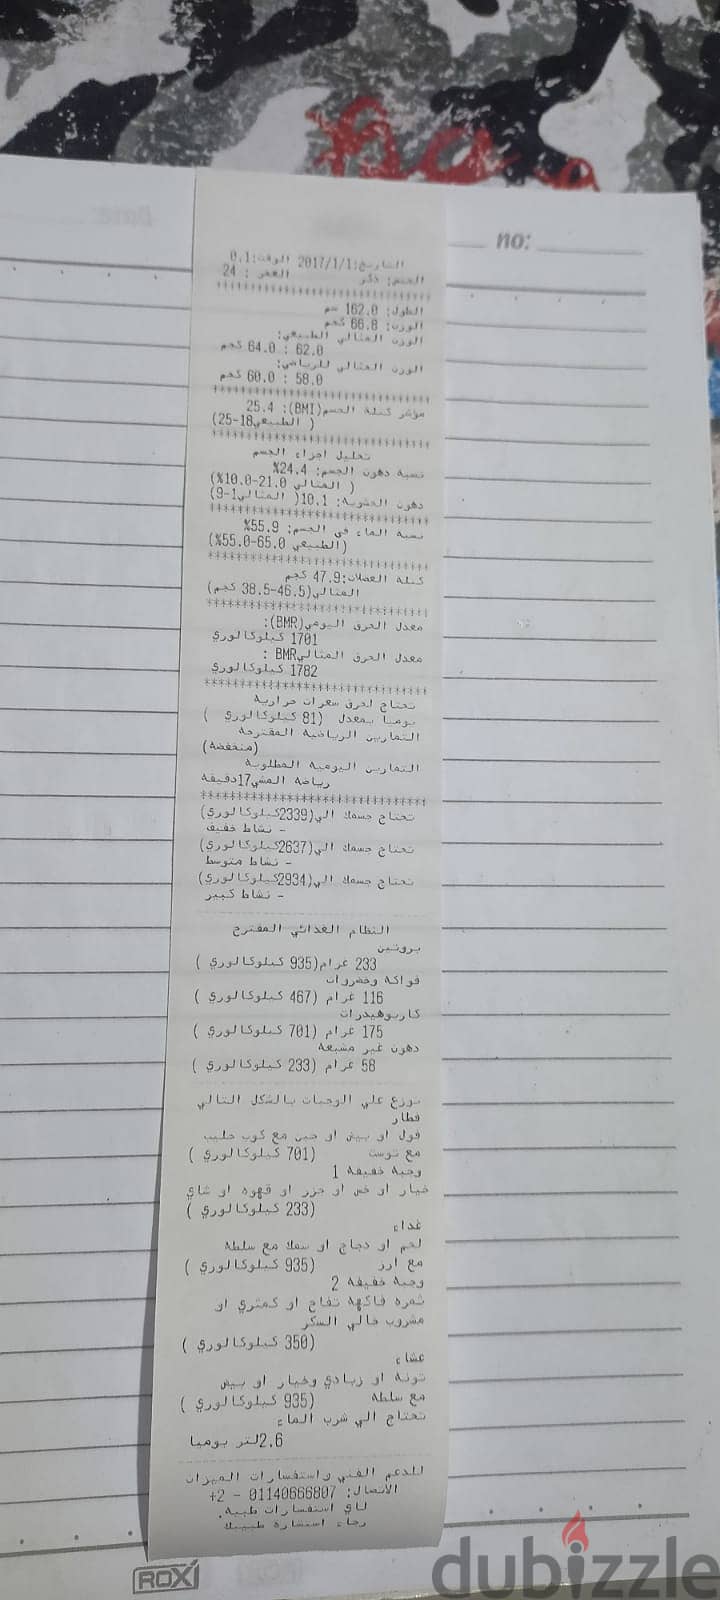 no:
التاريخ:2017/1/1 الوقت:0.1
الجنس: ذكر العمر : 24
************************
الطول: 162.0 سم
الوزن: 66.8 كجم
الوزن المثالي الطبيعي:
62.0 : 64.0 كجم
الوزن المثالي للرياضي:
58.0 : 60.0 كجم
************************
مؤشر كتلة الجسم(BMI): 25.4
( الطبيعي18-25)
************************
تحليل اجزاء الجسم
نسبة دهون الجسم: 24.4%
( المثالي 21.0-10.0%)
دهون الحشوية: 10.1( المثالي1-9)
************************
نسبة الماء في الجسم: 55.9%
(الطبيعي 65.0-55.0%)
************************
كتلة العضلات:47.9 كجم
المثالي(46.5-38.5 كجم)
************************
معدل الحرق اليومي(BMR):
1701 كيلوكالوري
معدل الحرق المثاليBMR :
1782 كيلوكالوري
************************
تحتاج لحرق سعرات حرارية
يوميا بمعدل (81 كيلوكالوري )
التمارين الرياضية المقترحة
(منخفضة)
التمارين اليومية المطلوبة
رياضة المشي17دقيقة
************************
تحتاج جسمك الي(2339كيلوكالوري)
- نشاط خفيف
تحتاج جسمك الي(2637كيلوكالوري)
- نشاط متوسط
تحتاج جسمك الي(2934كيلوكالوري)
- نشاط كبير
النظام الغذائي المقترح
بروتين
233 غرام(935 كيلوكالوري )
فواكة وخضروات
116 غرام (467 كيلوكالوري )
كاربوهيدرات
175 غرام (701 كيلوكالوري )
دهون غير مشبعة
58 غرام (233 كيلوكالوري )
توزع علي الوجبات بالشكل التالي
فطار
فول او بيض او جبن مع كوب حليب
مع توست (701 كيلوكالوري )
وجبة خفيفة 1
خيار او خس او جزر او قهوه او شاي
(233 كيلوكالوري )
غداء
لحم او دجاج او سمك مع سلطة
مع ارز (935 كيلوكالوري )
وجبة خفيفة 2
ثمره فاكهة تفاح او كمثري او
مشروب خالي السكر
(350 كيلوكالوري )
عشاء
تونة او زبادي وخيار او بيض
مع سلطة (935 كيلوكالوري )
تحتاج الي شرب الماء
2.6لتر يوميا
للدعم الفني واستفسارات الميزان
الاتصال: 01140666807 - 2+
لاي استفسارات طبية.
رجاء استشارة طبيبك
ROXI
dubizzle